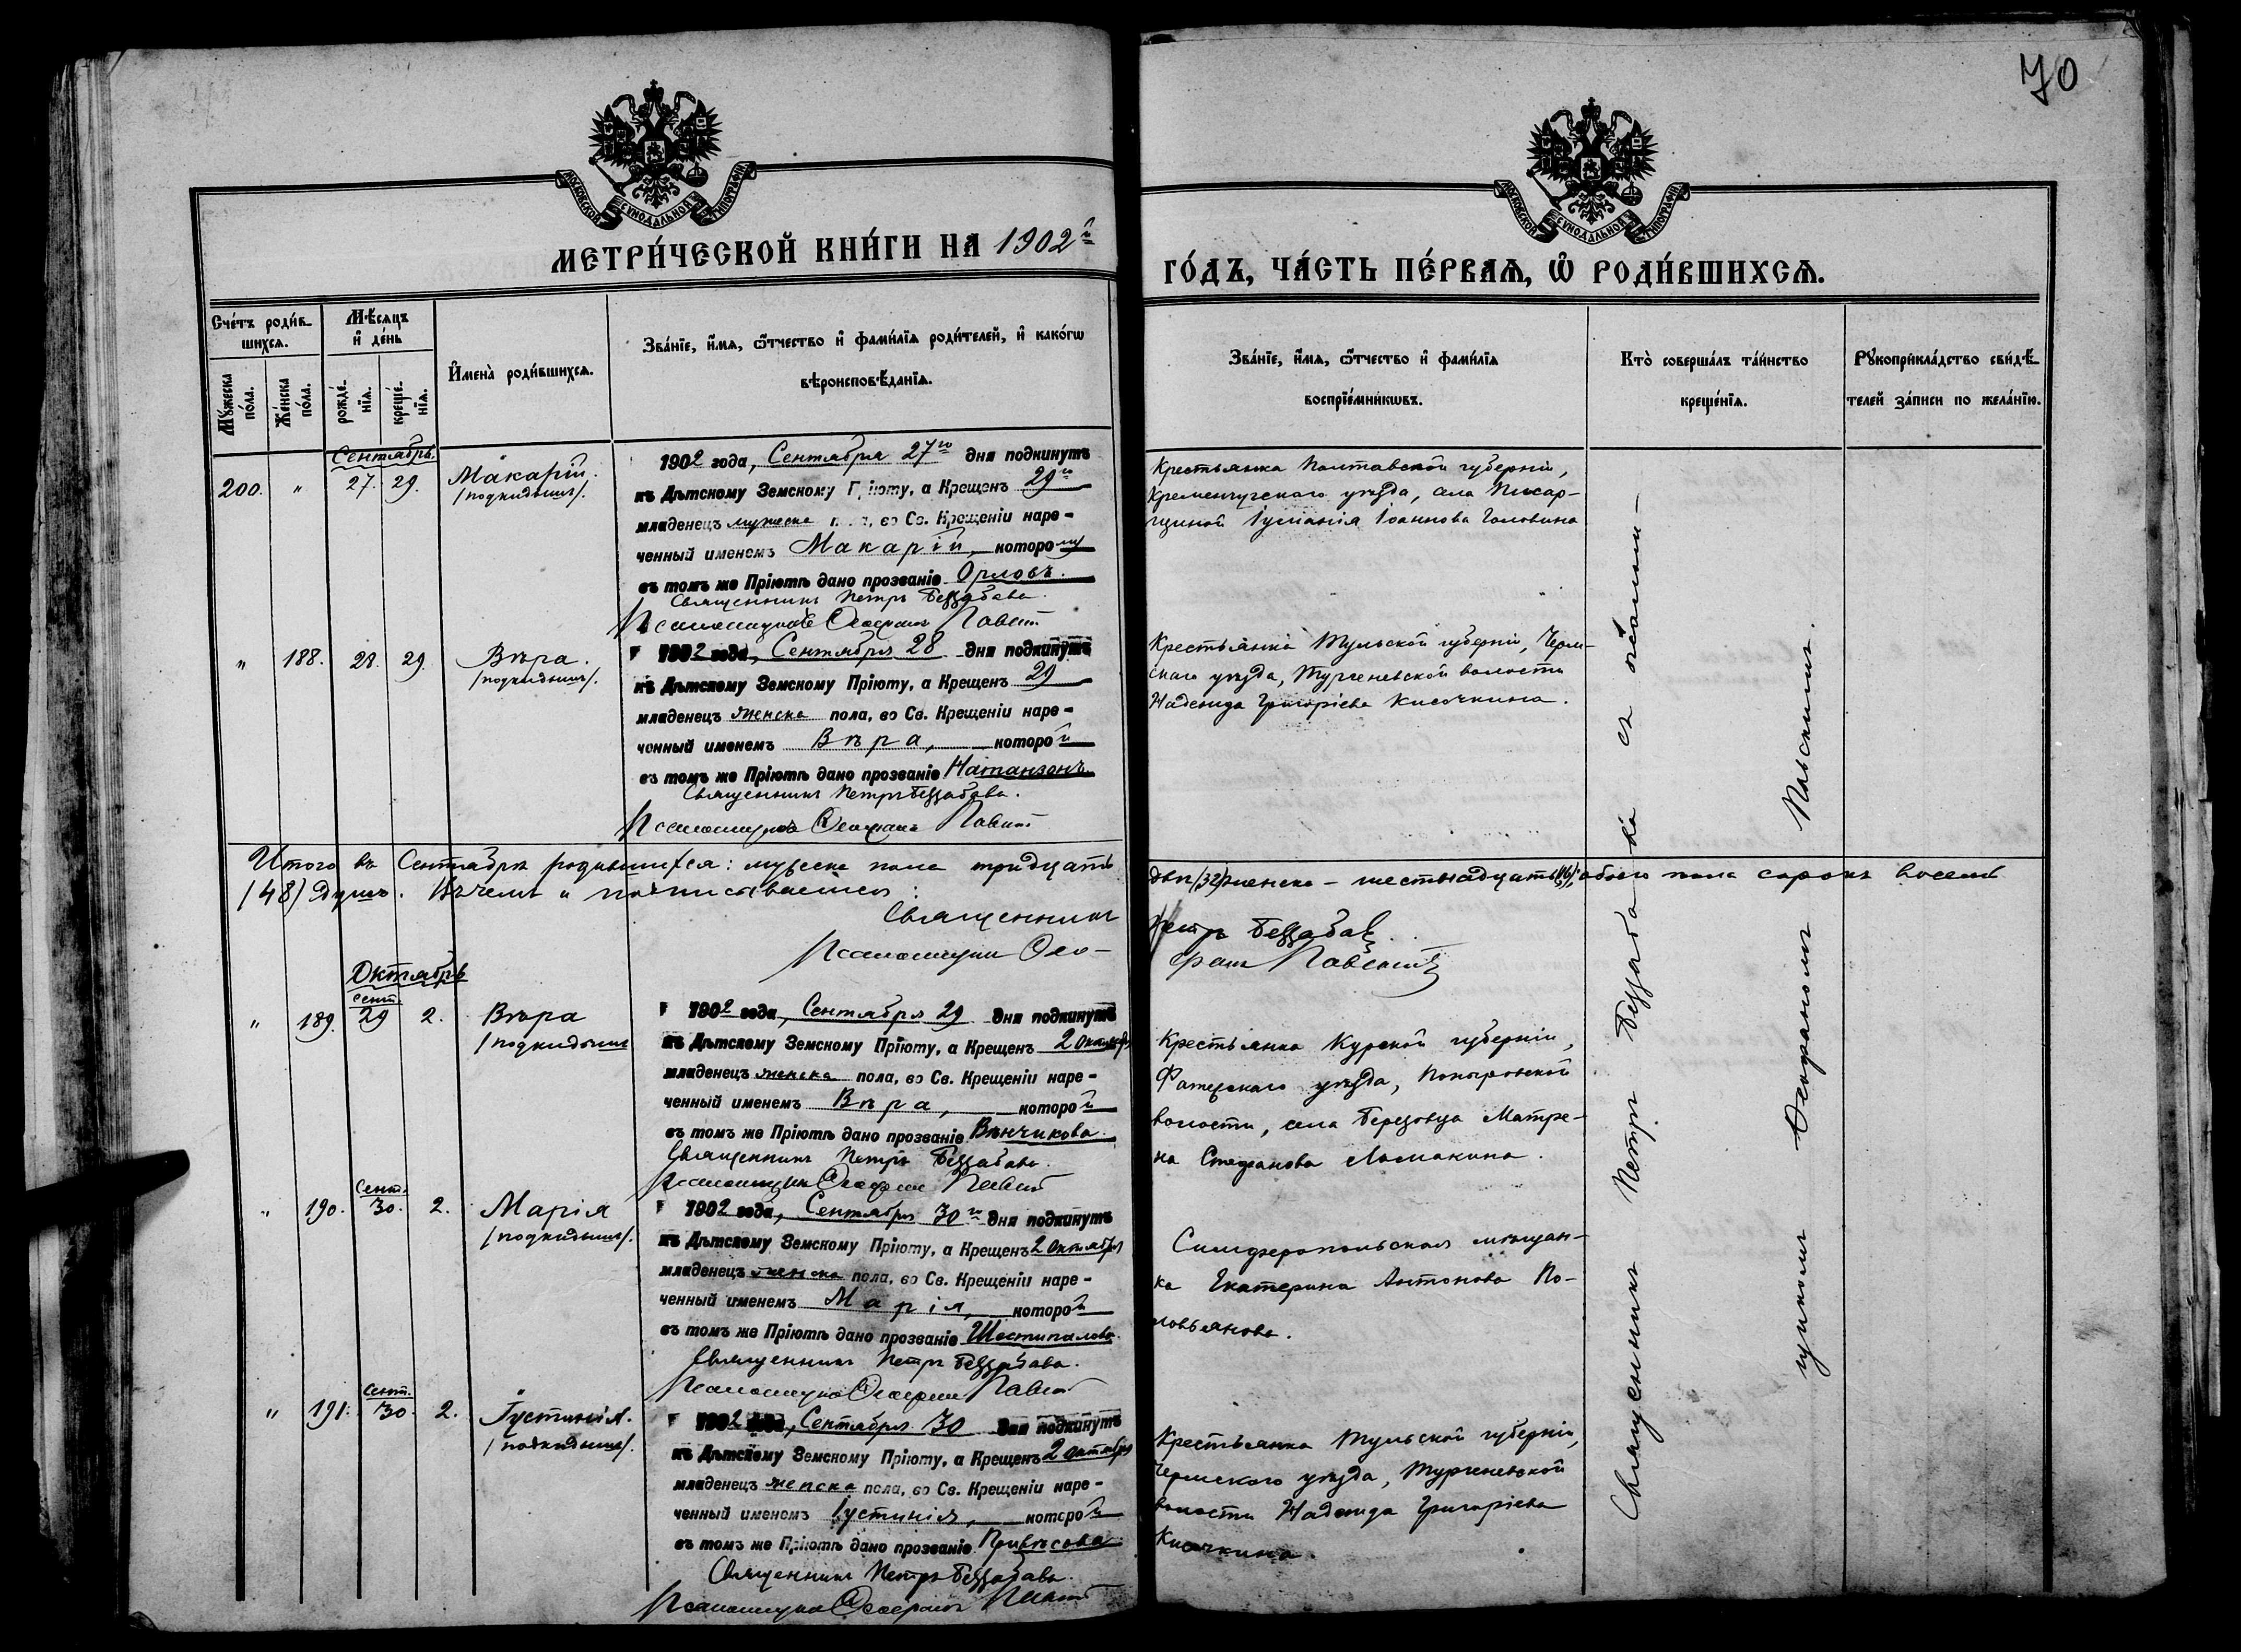 70
МОСКОВСКОЙ СѴНОДАЛЬНОЙ ТИПОГРАФІИ
МОСКОВСКОЙ СѴНОДАЛЬНОЙ ТИПОГРАФІИ
МЕТРИ́ЧЕСКОЙ КНИ́ГИ НА 1902й
ГО́ДЪ, ЧА́СТЬ ПЕ́РВАѦ, Ѡ҆ РОДИ́ВШИХСѦ.
Сче́тъ роди́в-
шихсѧ.
Мꙋ́жеска по́ла.
Же́нска по́ла.
Мѣ́сѧцъ
и҆ де́нь
рожде́-
нїѧ.
креще́-
нїѧ.
И҆мена̀ роди́вшихсѧ.
Зва́нїе, и҆́мѧ, ѻ҆́тчество и҆ фами́лїѧ роди́телей, и҆ како́гѡ
вѣроисповѣ́данїѧ.
Зва́нїе, и҆́мѧ, ѻ҆́тчество и҆ фами́лїѧ
воспрїе́мникѡвъ.
Кто̀ соверша́лъ та́инство
креще́нїѧ.
Рꙋкоприкла́дство свидѣ́-
телей за́писи по жела́нїю.
Сентябрь.
200. " 27. 29. Макарій.
/подкидышъ/.
1902 года, Сентября 27го дня подкинутъ
къ Дѣтскому Земскому Пріюту, а Крещенъ 29го
младенецъ мужеска пола, во Св. Крещеніи наре-
ченный именемъ Макарій, которому
въ томъ же Пріютѣ дано прозваніе Орловъ.
Священникъ Петръ
Псаломщикъ Ѳеофанъ
Крестьянка Полтавской губерніи,
Кременчугскаго уѣзда, села Писар-
щиной Іуліанія Іоаннова Головина
" 188. 28. 29. Вѣра.
/подкидышъ/.
1902 года, Сентября 28 дня подкинутъ
къ Дѣтскому Земскому Пріюту, а Крещенъ 29
младенецъ женска пола, во Св. Крещеніи наре-
ченный именемъ Вѣра, которой
въ томъ же Пріютѣ дано прозваніе Натанзонъ.
Священникъ Петръ
Псаломщикъ Ѳеофанъ
Крестьянка Тульской губерніи, Черн-
скаго уѣзда, Тургеневской волости
Надежда Григорьева Кисочкина.
Итого въ Сентябрѣ родившихся: мужеска пола тридцать
двѣ /32/ женска – шестнадцать /16/; обоего пола сорокъ восемь
/48/ душъ. Въ чемъ и подписываемся:
Священникъ
Петръ
Псаломщикъ Ѳео-
фанъ
Октябрь
" 189. сент. 29 2. Вѣра
/подкидышъ
1902 года, Сентября 29 дня подкинутъ
къ Дѣтскому Земскому Пріюту, а Крещенъ 2 октября
младенецъ женска пола, во Св. Крещеніи наре-
ченный именемъ Вѣра, которой
въ томъ же Пріютѣ дано прозваніе Вѣнчикова.
Священникъ Петръ
Псаломщикъ Ѳеофанъ
Крестьянка Курской губерніи,
Фатежскаго уѣзда, Поныровской
волости, села Березовца Матре-
на Стефанова Ломакина.
" 190. Сент. 30. 2. Марія
/подкидышъ/.
1902 года, Сентября 30го дня подкинутъ
къ Дѣтскому Земскому Пріюту, а Крещенъ 2 октября
младенецъ женска пола, во Св. Крещеніи наре-
ченный именемъ Марія, которой
въ томъ же Пріютѣ дано прозваніе Шестипалова.
Священникъ Петръ
Псаломщикъ Ѳеофанъ
Симферопольская мѣщан-
ка Екатерина Антонова По-
ловьянова.
" 191. Сент. 30. 2. Іустинія.
/подкидышъ/.
1902 года, Сентября 30 дня подкинутъ
къ Дѣтскому Земскому Пріюту, а Крещенъ 2 октября
младенецъ женска пола, во Св. Крещеніи наре-
ченный именемъ Іустинія, которой
въ томъ же Пріютѣ дано прозваніе Привѣсова
Священникъ Петръ
Псаломщикъ Ѳеофанъ
Крестьянка Тульской губерніи,
Чернскаго уѣзда, Тургеневской
волости Надежда Григорьева
Кисочкина.
Священникъ Петръ съ псалом-
щикомъ Ѳеофаномъ